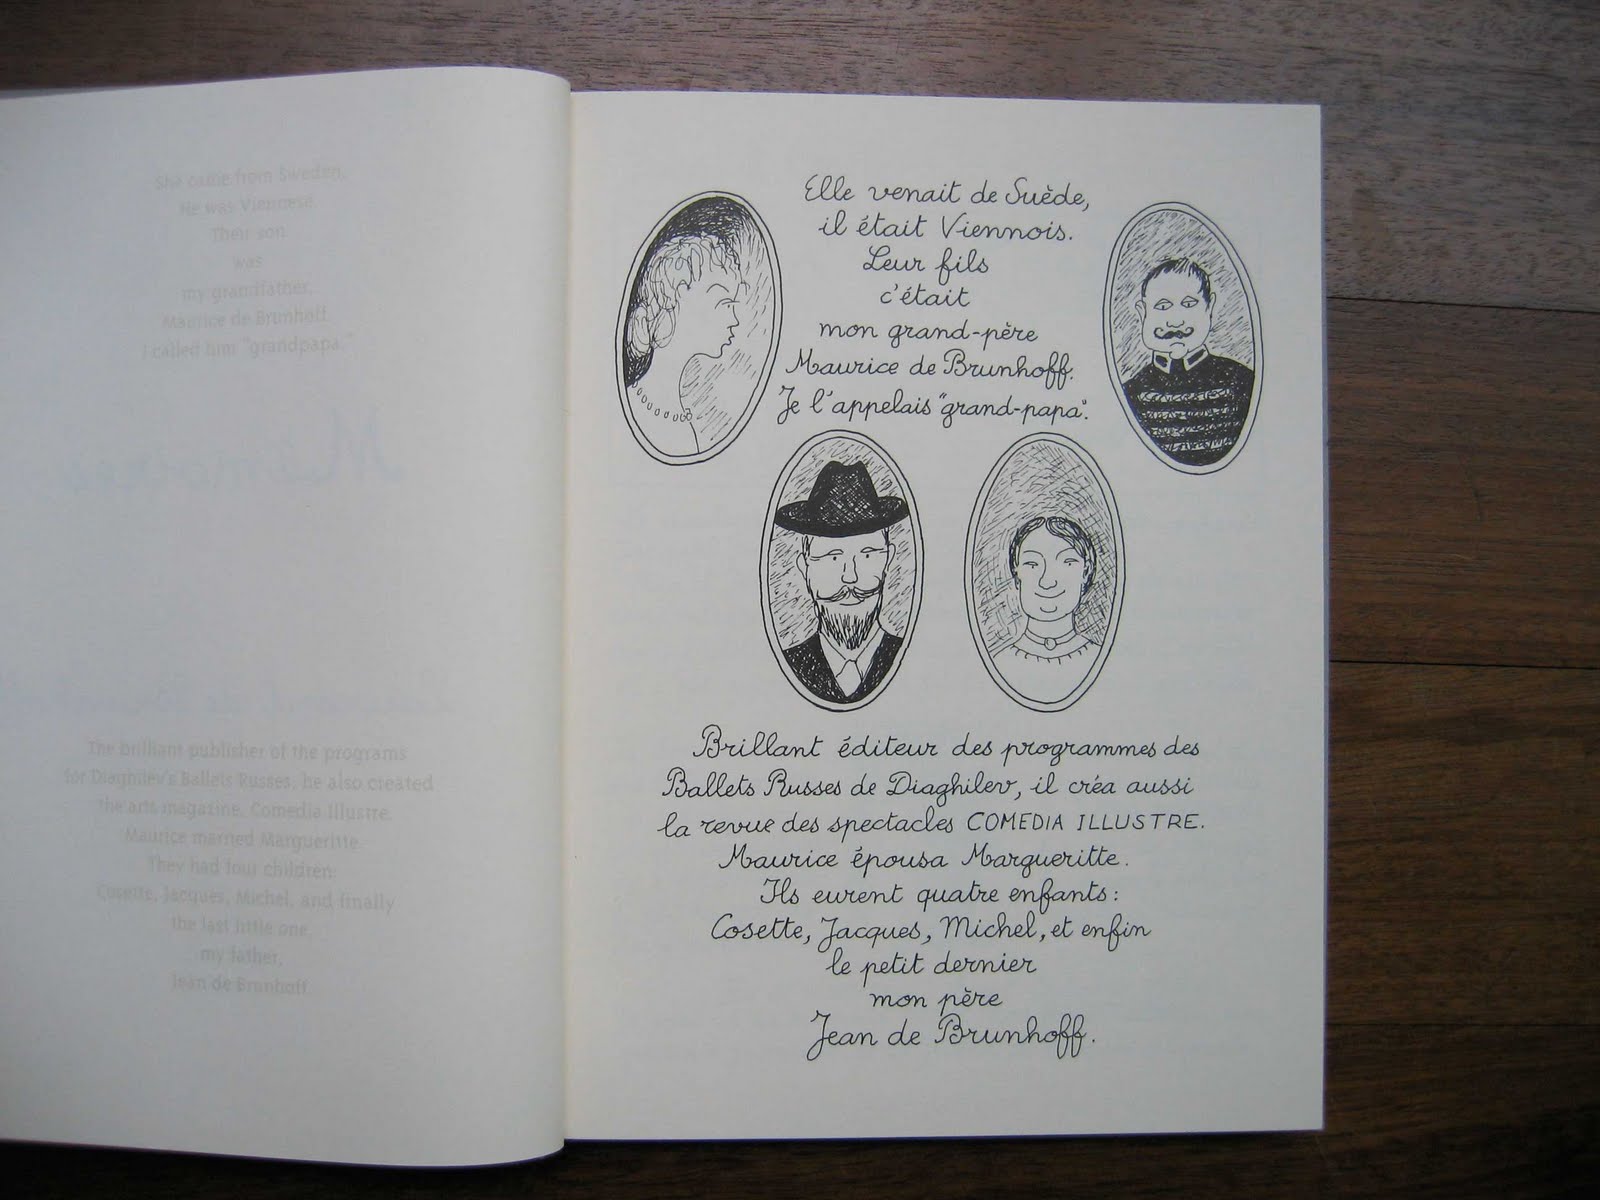 She came from Sweden,
He was Viennese.
Their son
was
my grandfather,
Maurice de Brunhoff.
I called him "grandpapa."
The brilliant publisher of the programs
for Diaghilev's Ballets Russes, he also created
the arts magazine, Comedia Illustre.
Maurice married Margueritte.
They had four children:
Cosette, Jacques, Michel, and finally
the last little one,
my father,
Jean de Brunhoff.
Elle venait de Suède,
il était Viennois.
Leur fils
c'était
mon grand-père
Maurice de Brunhoff.
Je l'appelais "grand-papa".
Brillant éditeur des programmes des
Ballets Russes de Diaghilev, il créa aussi
la revue des spectacles COMEDIA ILLUSTRE.
Maurice épousa Margueritte.
Ils eurent quatre enfants:
Cosette, Jacques, Michel, et enfin
le petit dernier
mon père
Jean de Brunhoff.